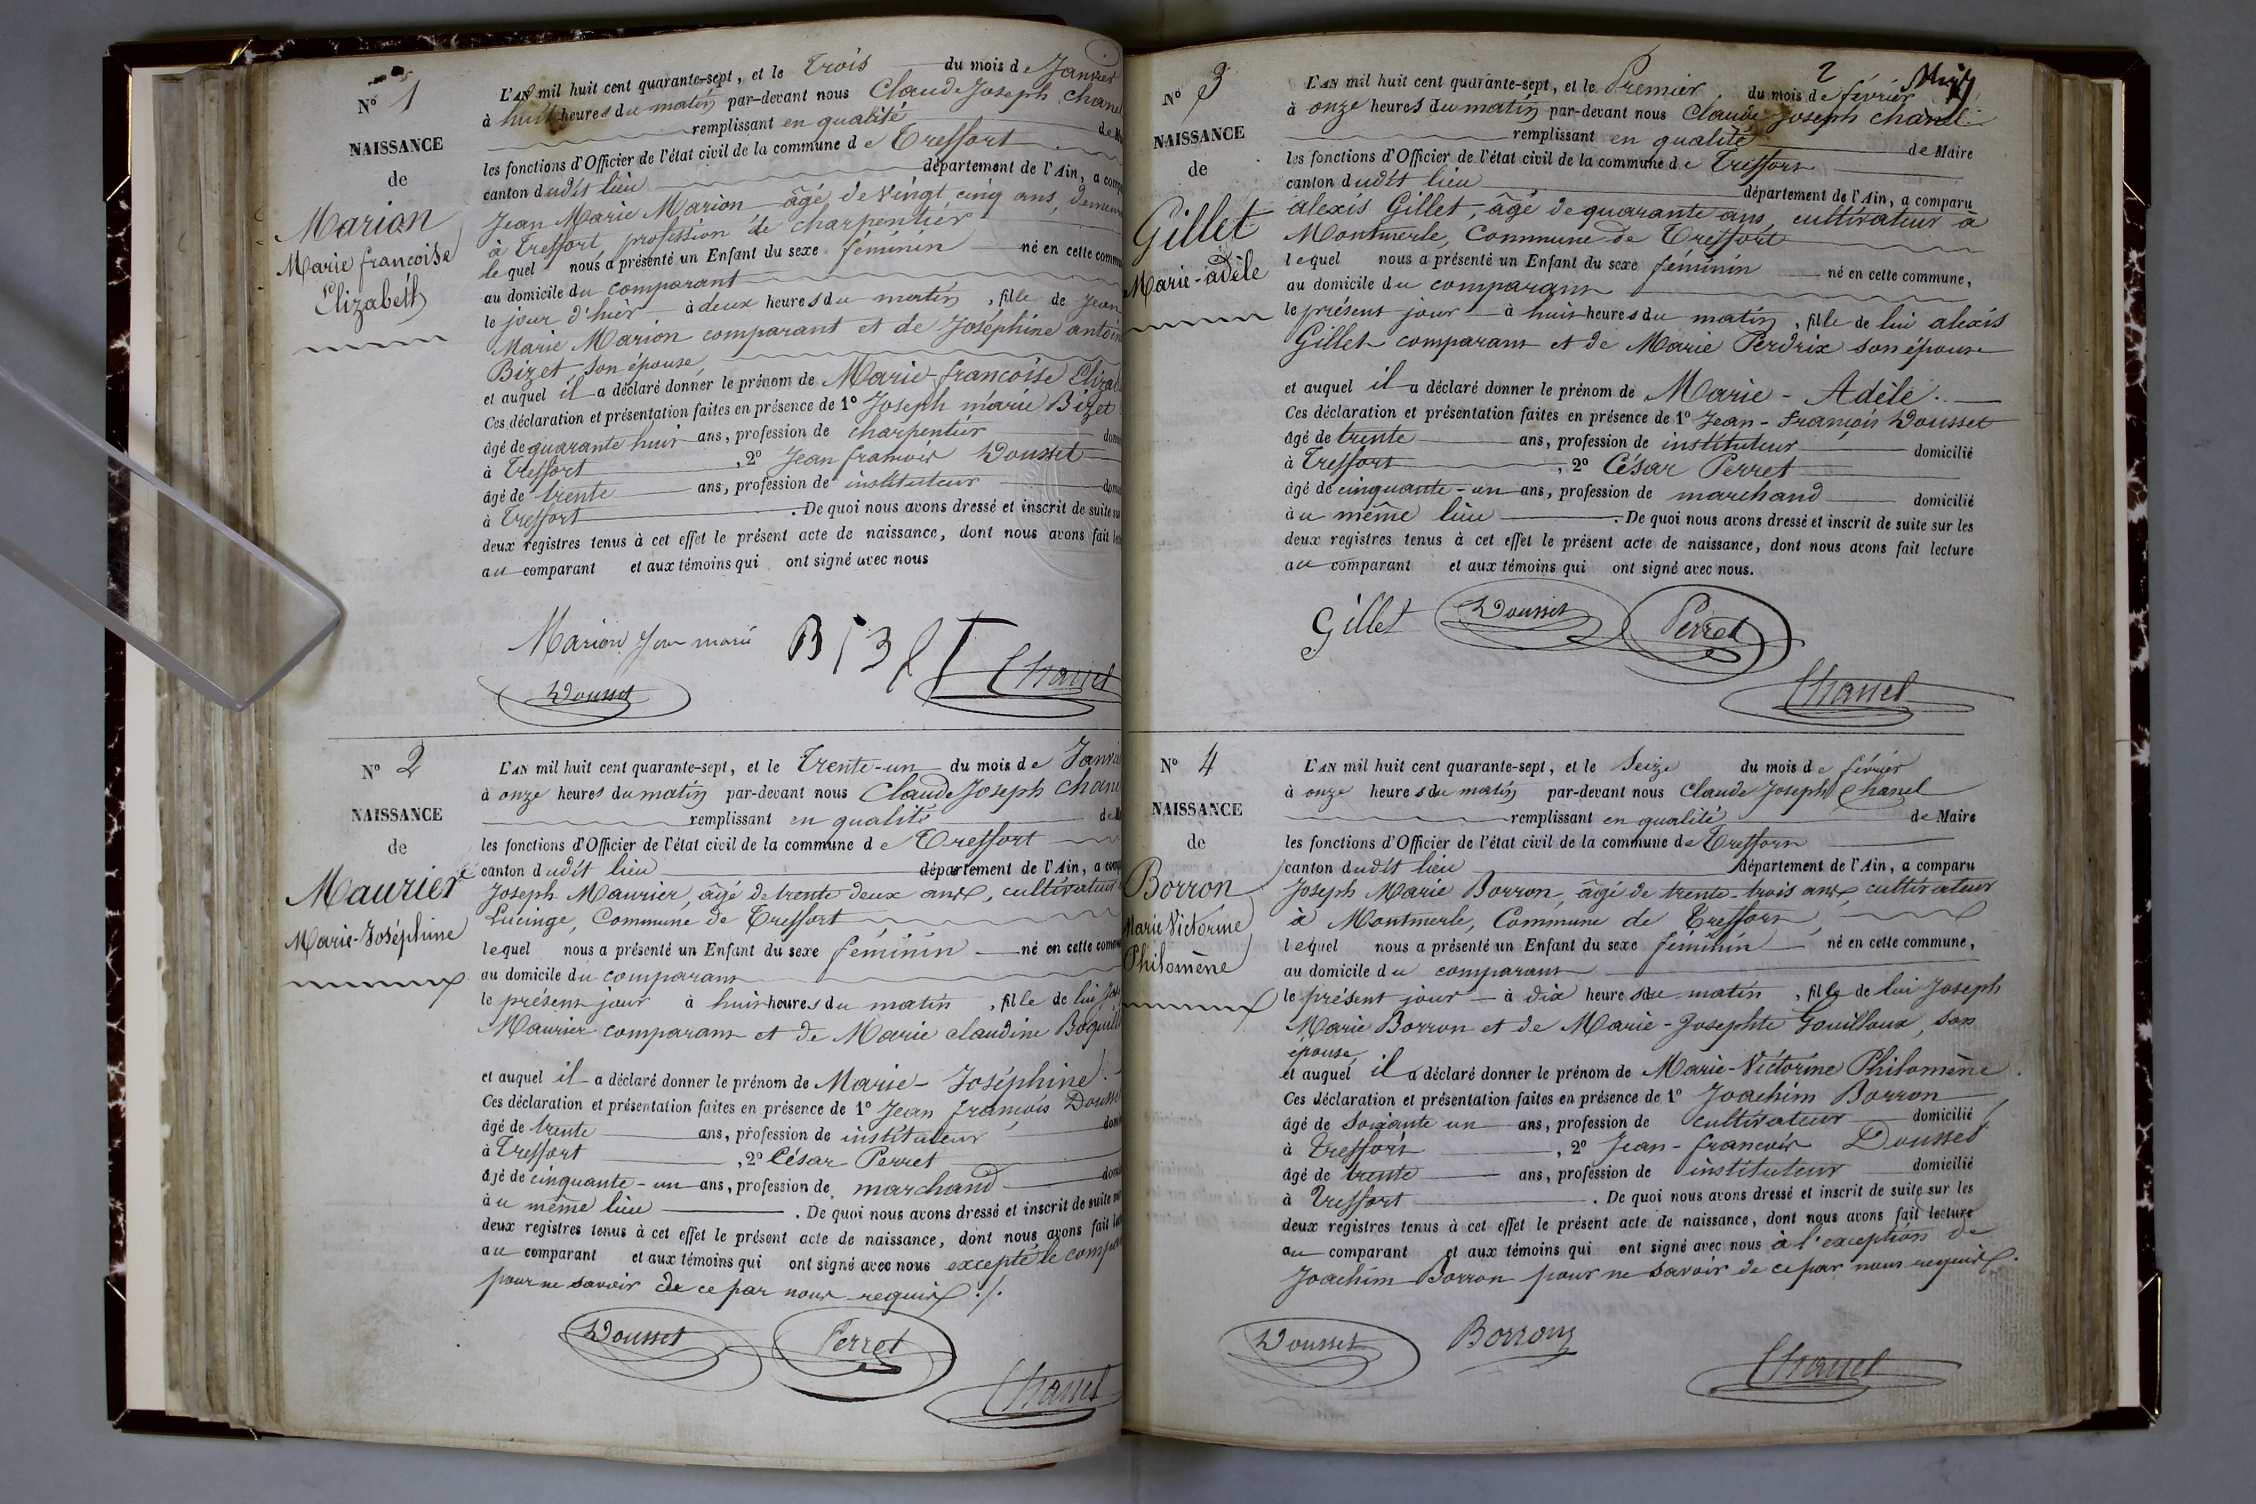 N° 1
NAISSANCE
de
Marion
Marie françoise
Elizabeth
L'AN mil huit cent quarante-sept, et le trois du mois de Janvier
à huit heures du matin par-devant nous Claude Joseph Chanel
remplissant en qualité de
les fonctions d'Officier de l'état civil de la commune de Treffort
canton dudit lieu département de l'Ain, a
Jean Marie Marion âgé de vingt cinq ans,
à Treffort, profession de charpentier
lequel nous a présenté un Enfant du sexe féminin né en cette
au domicile du comparant
le jour d'hier à deux heures du matin, fille de Jean
Marie Marion comparant et de Joséphine
Bizet, son épouse,
et auquel il a déclaré donner le prénom de Marie françoise
Ces déclaration et présentation faites en présence de 1° Joseph marie Bizet
âgé de quarante huit ans, profession de charpentier
à Treffort, 2° Jean françois Dousset
âgé de trente ans, profession de instituteur
à Treffort. De quoi nous avons dressé et inscrit de suite
deux registres tenus à cet effet le présent acte de naissance, dont nous avons fait
au comparant et aux témoins qui ont signé avec nous
Marion Jean marie Bizet
Dousset Chanel
N° 2
NAISSANCE
de
Maurier
Marie-Joséphine
L'AN mil huit cent quarante-sept, et le trente-un du mois de
à onze heures du matin par-devant nous Claude Joseph
remplissant en qualité de
les fonctions d'Officier de l'état civil de la commune de Treffort
canton dudit lieu département de l'Ain, a
Joseph Maurier, âgé de trente deux ans, cultivateur
Lucinge, Commune de Treffort
lequel nous a présenté un Enfant du sexe féminin né en cette
au domicile du comparant
le présent jour à huit heures du matin, fille de lui
Maurier comparant et de Marie claudine
et auquel il a déclaré donner le prénom de Marie-Joséphine.
Ces déclaration et présentation faites en présence de 1° Jean françois
âgé de trente ans, profession de instituteur
à Treffort, 2° César Perret
âgé de cinquante-un ans, profession de marchand
à u même lieu. De quoi nous avons dressé et inscrit de suite
deux registres tenus à cet effet le présent acte de naissance, dont nous avons fait
au comparant et aux témoins qui ont signé avec nous excepté le
pour ne savoir de ce par nous requis ./.
Dousset Perret
Chanel
2
N° 3
NAISSANCE
de
Gillet
Marie-adèle
L'AN mil huit cent quarante-sept, et le Premier du mois de février
à onze heures du matin par-devant nous Claude Joseph chanel
remplissant en qualité de Maire
les fonctions d'Officier de l'état civil de la commune de Treffort
canton dudit lieu département de l'Ain, a comparu
alexis Gillet, âgé de quarante ans, cultivateur à
Montmerle, Commune de Treffort
lequel nous a présenté un Enfant du sexe féminin né en cette commune,
au domicile du comparant
le présent jour à huit heures du matin, fille de lui alexis
Gillet comparant et de Marie Perdrix son épouse
et auquel il a déclaré donner le prénom de Marie-Adèle.
Ces déclaration et présentation faites en présence de 1° Jean-François Dousset
âgé de trente ans, profession de instituteur domicilié
à Treffort, 2° César Perret
âgé de cinquante-un ans, profession de marchand domicilié
à u même lieu. De quoi nous avons dressé et inscrit de suite sur les
deux registres tenus à cet effet le présent acte de naissance, dont nous avons fait lecture
au comparant et aux témoins qui ont signé avec nous.
Gillet Dousset Perret
Chanel
N° 4
NAISSANCE
de
Borron
Marie Victorine
Philomène
L'AN mil huit cent quarante-sept, et le Seize du mois de février
à onze heures du matin par-devant nous Claude Joseph Chanel
remplissant en qualité de Maire
les fonctions d'Officier de l'état civil de la commune de Treffort
canton dudit lieu département de l'Ain, a comparu
Joseph Marie Borron, âgé de trente-trois ans, cultivateur
à Montmerle, Commune de Treffort,
lequel nous a présenté un Enfant du sexe féminin né en cette commune,
au domicile du comparant
le présent jour à dix heures du matin, fille de lui Joseph
Marie Borron et de Marie-Josephte Gouilloux, son
épouse,
et auquel il a déclaré donner le prénom de Marie-Victorine Philomène.
Ces déclaration et présentation faites en présence de 1° Joachim Borron
âgé de soixante un ans, profession de cultivateur domicilié
à Treffort, 2° Jean-françois Dousset
âgé de trente ans, profession de instituteur domicilié
à Treffort. De quoi nous avons dressé et inscrit de suite sur les
deux registres tenus à cet effet le présent acte de naissance, dont nous avons fait lecture
au comparant et aux témoins qui ont signé avec nous à l'exception de
Joachim Borron pour ne savoir de ce par nous requis.
Dousset Borron
Chanel